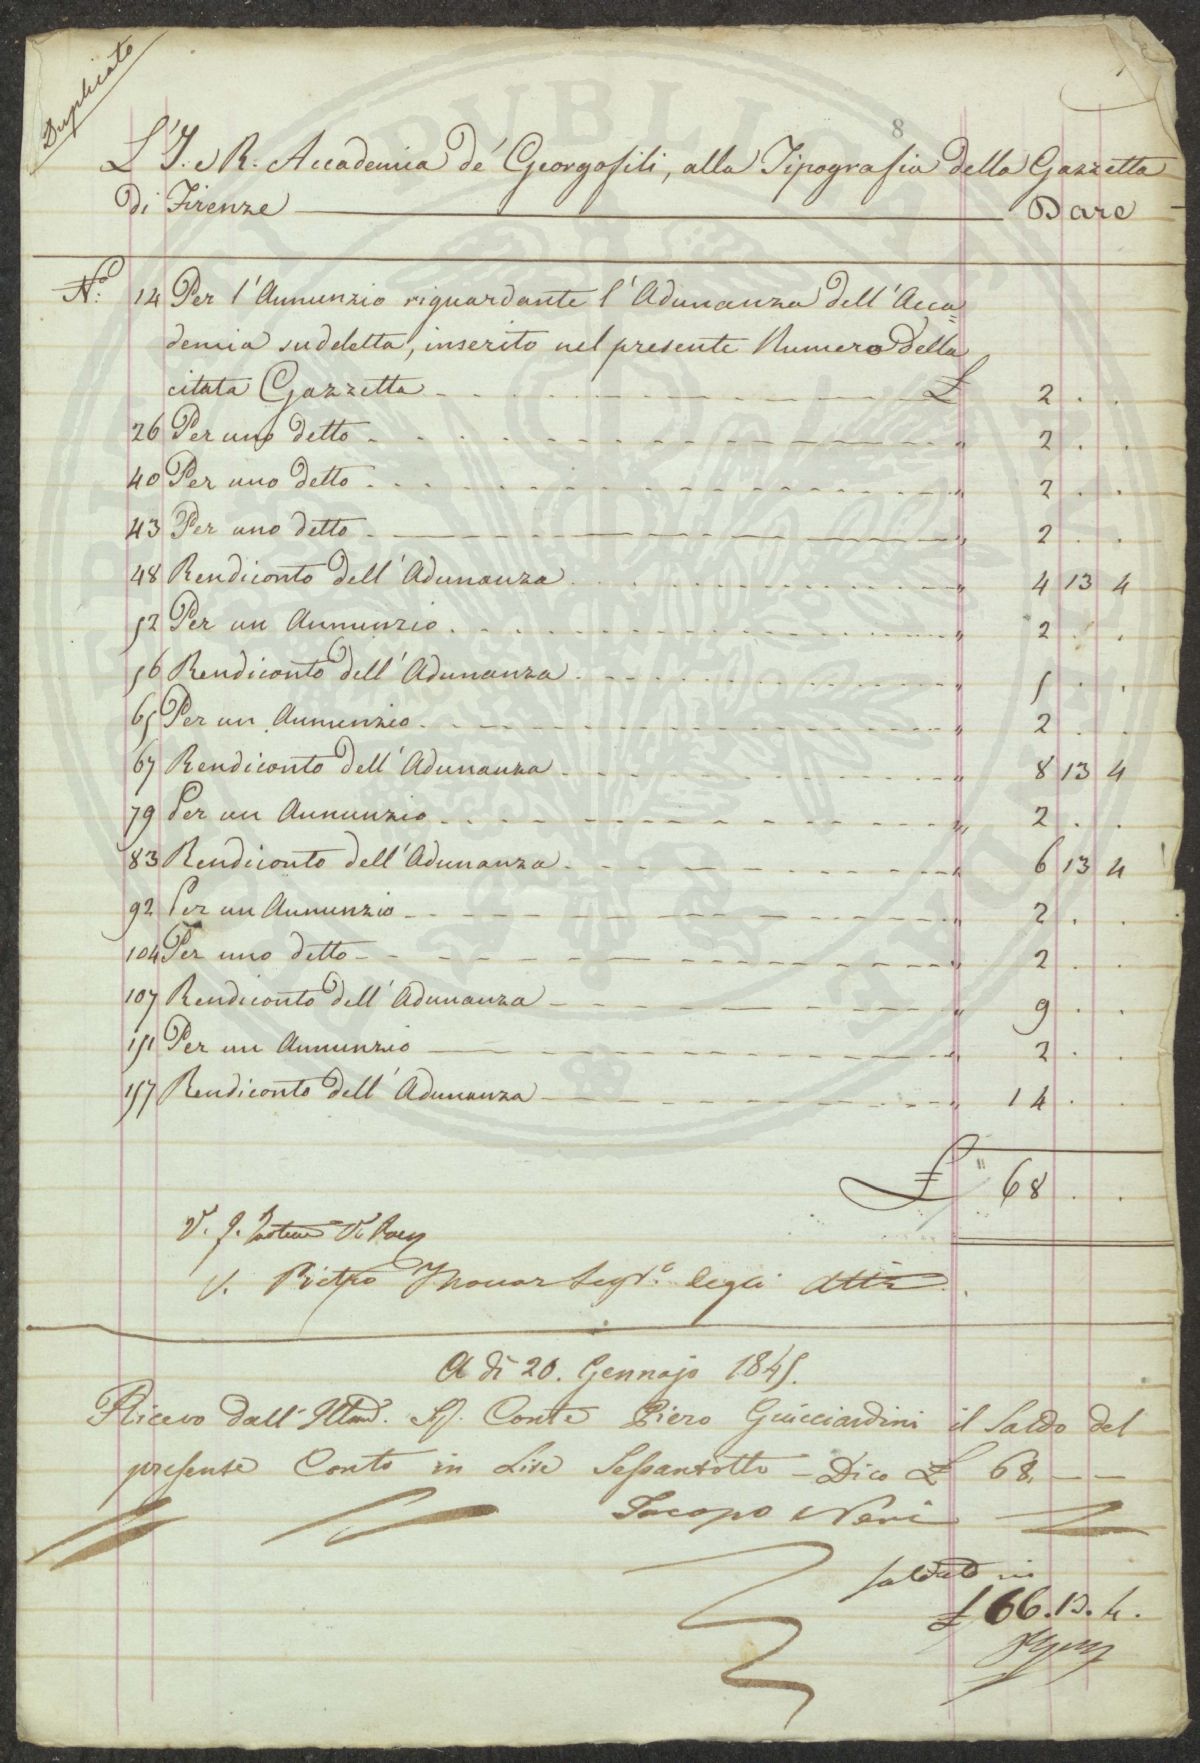 Duplicato
8
L'I. e R. Accademia de' Georgofili, alla Tipografia della Gazzetta
di Firenze Dare
N.o 14 Per l'Annunzio riguardante l'Adunanza dell'Acca=
demia sudetta, inserito nel presente Numero della
citata Gazzetta £ 2 . .
26 Per uno detto " 2 . .
40 Per uno detto " 2 . .
43 Per uno detto " 2 . .
48 Rendiconto dell'Adunanza " 4 13 4
52 Per un Annunzio " 2 . .
56 Rendiconto dell'Adunanza " 5 . .
65 Per un Annunzio " 2 . .
67 Rendiconto dell'Adunanza " 8 13 4
79 Per un Annunzio " 2 . .
83 Rendiconto dell'Adunanza " 6 13 4
92 Per un Annunzio " 2 . .
104 Per uno detto " 2 . .
107 Rendiconto dell'Adunanza " 9 . .
151 Per un Annunzio " 2 . .
157 Rendiconto dell'Adunanza " 14 . .
£ 68 . .
V.
V. Pietro Thouar Seg.o degli Atti
A dì 20. Gennajo 1845.
Ricevo dall' Illmo. Sig. Conte Piero Guicciardini il Saldo del
presente Conto in Lire Sessantotto – Dico £ 68. — —
Jacopo Neri
saldato in
£ 66. 13. 4.